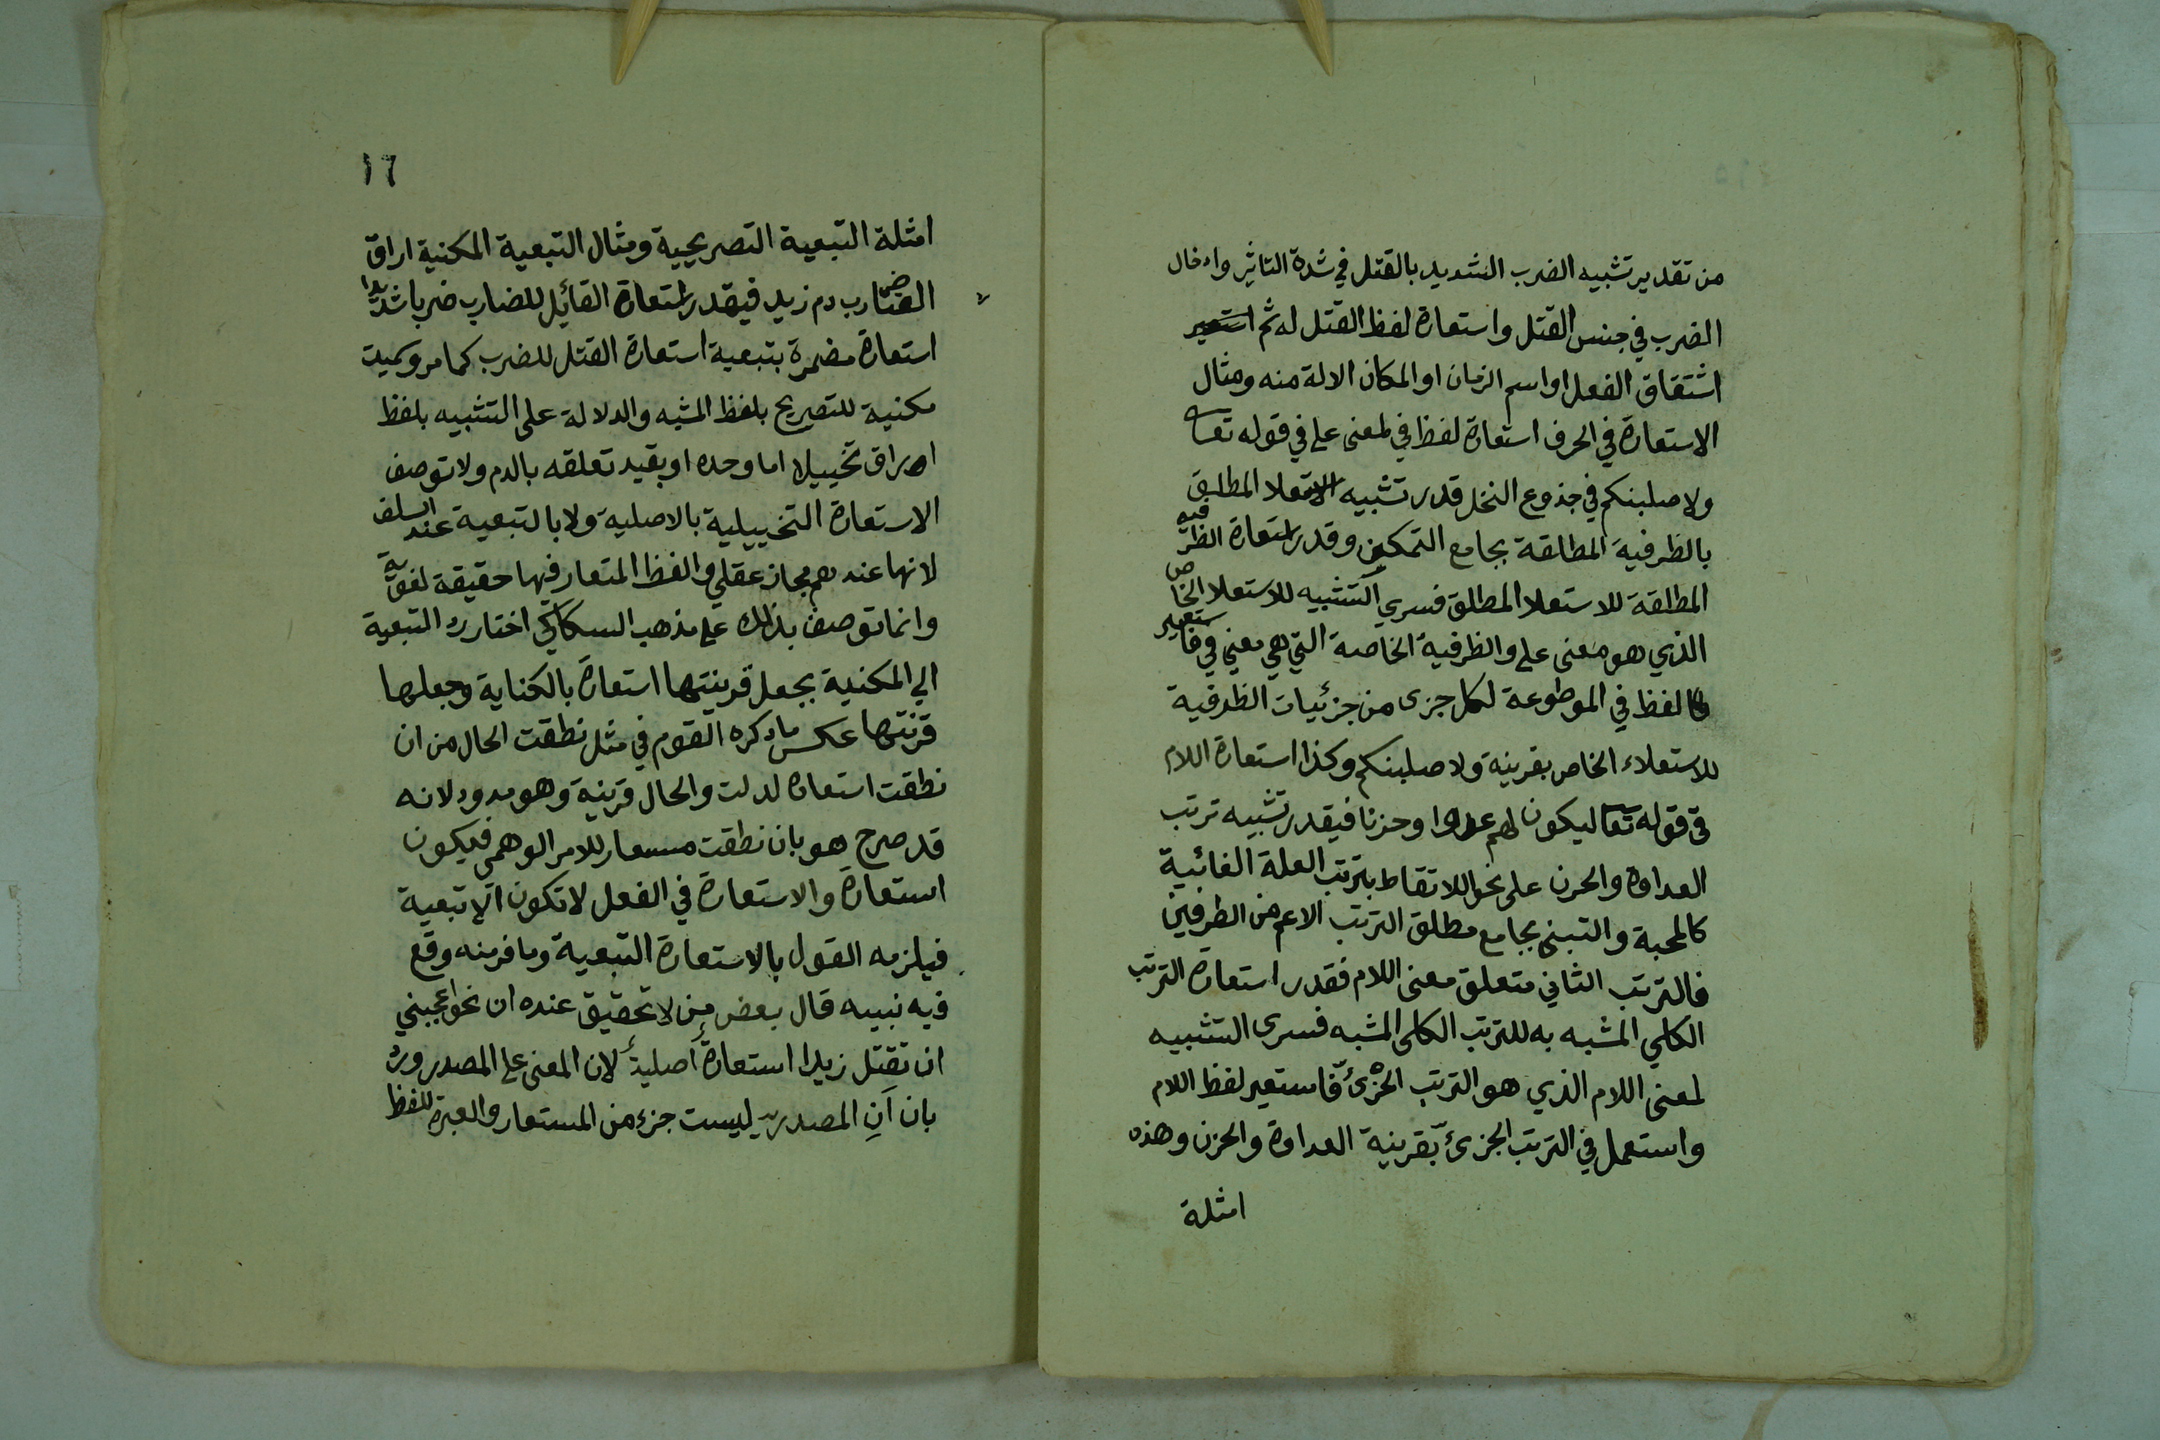 من تقدير تشبيه الضرب الشديد بالقتل في شدة التاثير وادخال
الضرب في جنس القتل واستعارة لفظ القتل له ثم
اشتقاق الفعل او اسم الزمان او المكان الالة منه ومثال
الاستعارة في الحرف استعارة لفظ في لمعنى على في قوله تعا
ولاصلبنكم في جذوع النخل قدر تشبيه الاستعلا المطلق
بالظرفية المطالقة بجامع التمكين وقدر استعارة الظرفيه
المطلقة للاستعلا المطلق فسري التشبيه للاستعلا الخاص
الذي هو معنى على والظرفية الخاصة التي هي معني في فاستعير
لفظ في الموضوعة لكل جزى من جزئيات الظرفية
للاستعلاء الخاص بقرينة ولاصلبنكم وكذا استعارة اللام
في قوله تعا ليكون لهم عدوا وحزنا فيقدر تشبيه ترتب
العداوة والحزن على نحو الالتقاط بترتب العلة الغائية
كالمحبة والتبنى بجامع مطلق الترتب الاعم من الطرفين
فالترتب الثاني متعلق معنى اللام فقدر استعارة الترتب
الكلي المشبه به للترتب الكلى المشبه فسرى التشبيه
لمعنى اللام الذي هو الترتب الجزئ فاستعير لفظ اللام
واستعمل في الترتب الجزئ بقرينة العداوة والحزن وهذه
امثلة
١٦
امثلة التبعية التصريحية ومثال التبعية المكنية اراق
الضارب دم زيد فيقدر استعارة القائل للضارب ضربا شديدا
استعارة مضمرة بتبعية استعارة القتل للضرب كما مر وسميت
مكنية للتصريح بلفظ المشبه والدلالة على التشبيه بلفظ
اهراق تخييلا اما وحده او بقيد تعلقه بالدم ولا توصف
الاستعارة التخييلية بالاصلية ولا بالتبعية عند السلف
لانها عندهم مجاز عقلي والفظ المتعار فيها حقيقة لغوية
وانما توصف بذلك على مذهب السكاكي اختار رد التبعية
الي المكنية بجعل قرينتها استعارة بالكناية وجعلها
قرنتها عكس ما ذكره القوم في مثل نطقت الحال من ان
نطقت استعارة لدلت والحال قرينة وهو مردود لانه
قد صرح هو بان نطقت مستعار للامر الوهمى فيكون
استعارة والاستعارة في الفعل لا تكون الا تبعية
فيلزمه القول بالاستعارة التبعية وما فر منه وقع
فيه نبيه قال بعض من لا تحقيق عنده ان نحو اعجبني
ان تقتل زيدا استعارة اصلية لان المعنى على المصدر ورد
بان ان المصدرية ليست جزء من المستعار والعبرة للفظ